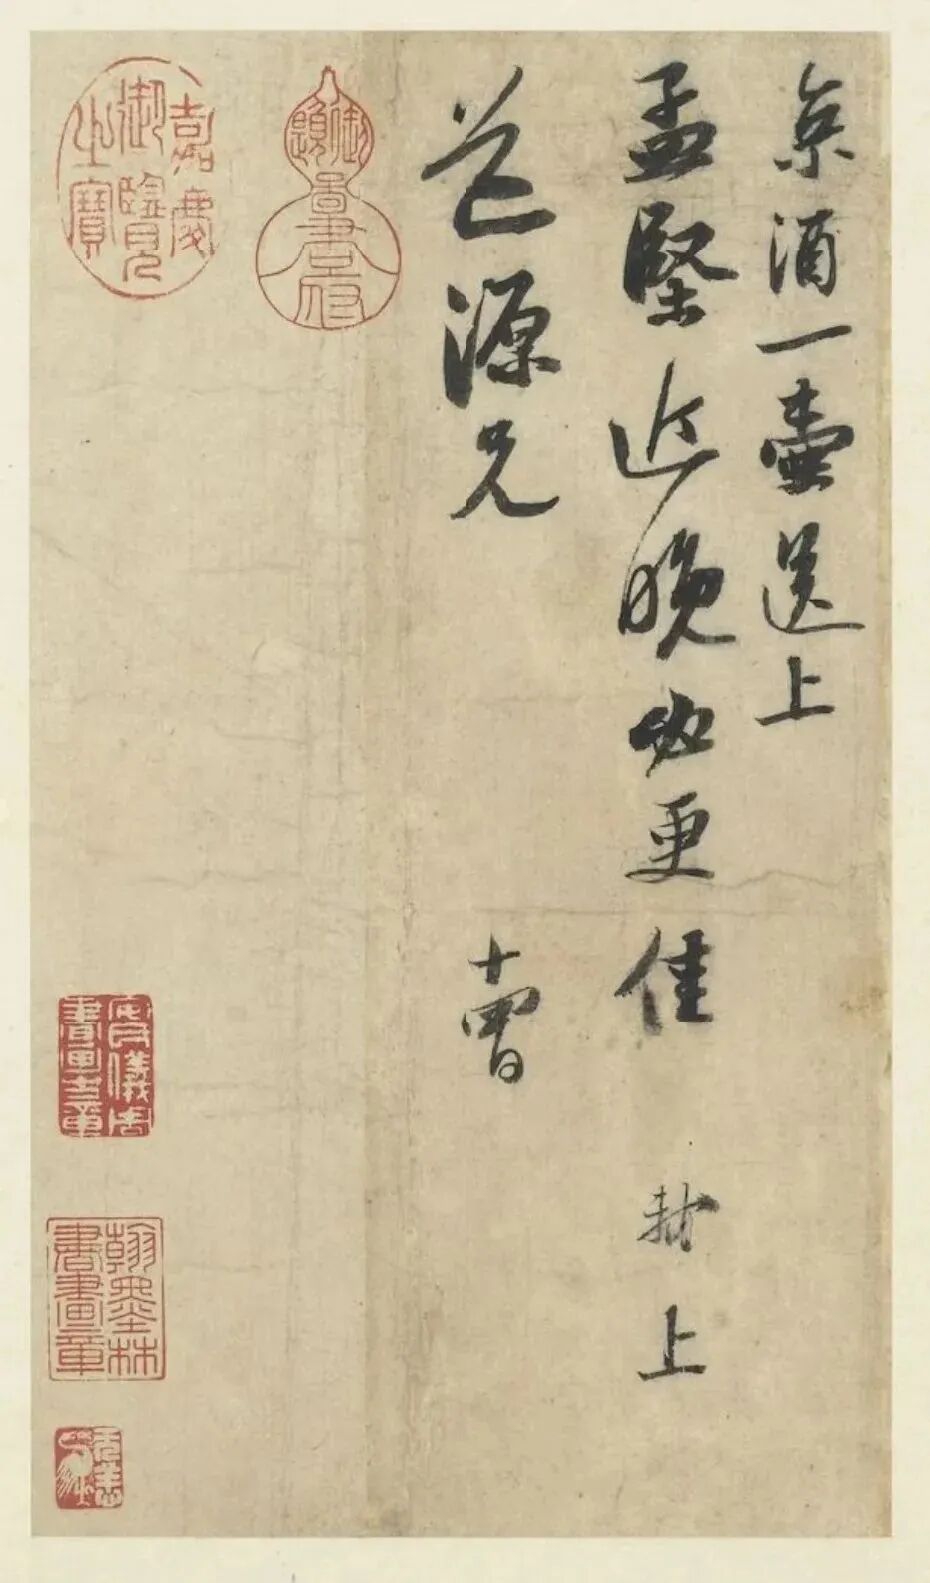 京酒一壺送上
孟堅近晚必更佳 軾上
道源兄 十四日
嘉慶御覽之寶
安儀周書畫之章
翰墨林書畫章